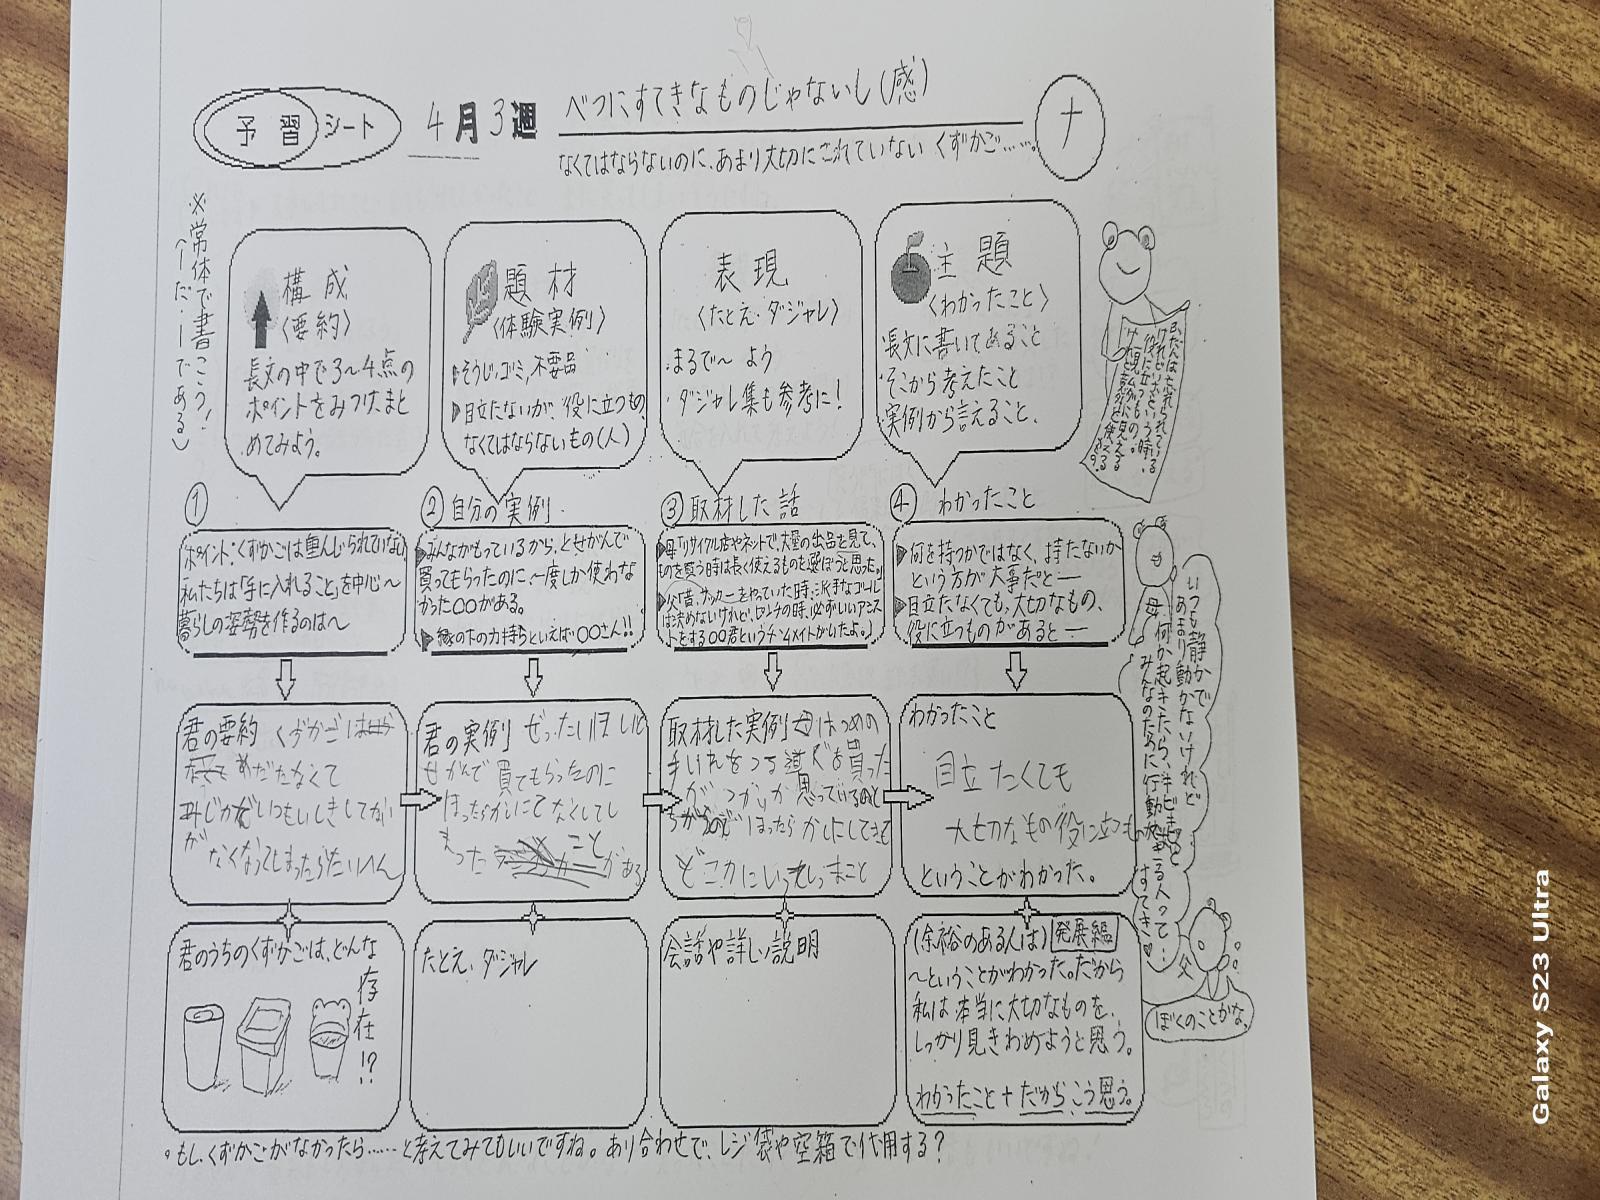 予習シート
4月3週
べつにすてきなものじゃないし(感)
なくてはならないのに、あまり大切にされていない くずかご……。
ナ
※常体で書こう!
(〜だ・〜である)
構成
〈要約〉
長文の中で3〜4点の
ポイントをみつけまと
めてみよう。
題材
〈体験実例〉
そうじ、ゴミ、不要品
目立たないが、役に立つもの、
なくてはならないもの(人)
表現
〈たとえ・ダジャレ〉
・まるで〜よう
・ダジャレ集も参考に!
主題
〈わかったこと〉
・長文に書いてあること
・そこから考えたこと
・実例から言えること。
ふだんは忘れられている
けれどいざという時、
役に立つもの。
①
ポイント:くずかごは重んじられていない
私たちは「手に入れること」を中心〜
暮らしの姿勢を作るのは〜
②自分の実例
みんながもっているから、とせがんで
買ってもらったのに、一度しか使わな
かった〇〇がある。
縁の下の力持ちといえば・〇〇さん!!
③取材した話
母「リサイクル店やネットで、大量の出品を見て、
ものを買う時は長く使えるものを選ぼうと思った。」
父「昔、サッカーをやっていた時、派手なゴール
は決めないけれど、ピンチの時、必ずいいアシス
トをする〇〇君というチームメイトがいたよ。」
④わかったこと
何を持つかではなく、持たないか
という方が大事だと―
目立たなくても、大切なもの、
役に立つものがあると―
いつも静かで
あまり動かないけれど
何か起きたら、キビキビと
みんなのために行動する人って…
すてき♡
母
君の要約 くずかごは
めだたなくて
みじかでいつもいしきしてない
が
なくなってしまったらたいへん
君の実例 ぜったいほしいと
せがんで買てもらったのに
ほったらかしにてなくしてし
まった
ことがある
取材した実例 母はつめの
手いれをする道ぐを買った
がつかうか思っているのと
ちがうのでほったらかしにしてきて
どこかにいってしっまこと
わかったこと
目立たくても
大切なもの役に立つもの
ということがわかった。
君のうちのくずかごは、どんな
存在!?
たとえ、ダジャレ
会話や詳しい説明
(余裕のある人は)発展編
〜ということがわかった。だから
私は本当に大切なものを、
しっかり見きわめようと思う。
わかったこと+だからこう思う。
父
ぼくのことかな。
。もし、くずかごがなかったら……と考えてみてもいいですね。あり合わせで、レジ袋や空箱で代用する?
Galaxy S23 Ultra